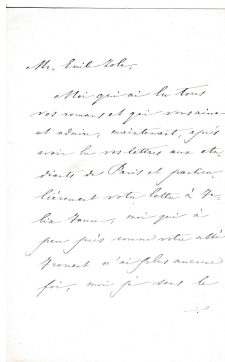 Mr. Emil Zola,
Moi qui ai lu tous
vos romans et qui vous aime
et admire, maintenant, après
avoir lu vos lettres aux étu-
diants de Paris et particu-
lièrement votre lettre à Fé-
lix Faure, moi qui à
peu près comme votre
n'ai plus aucune
foi, moi je sens le